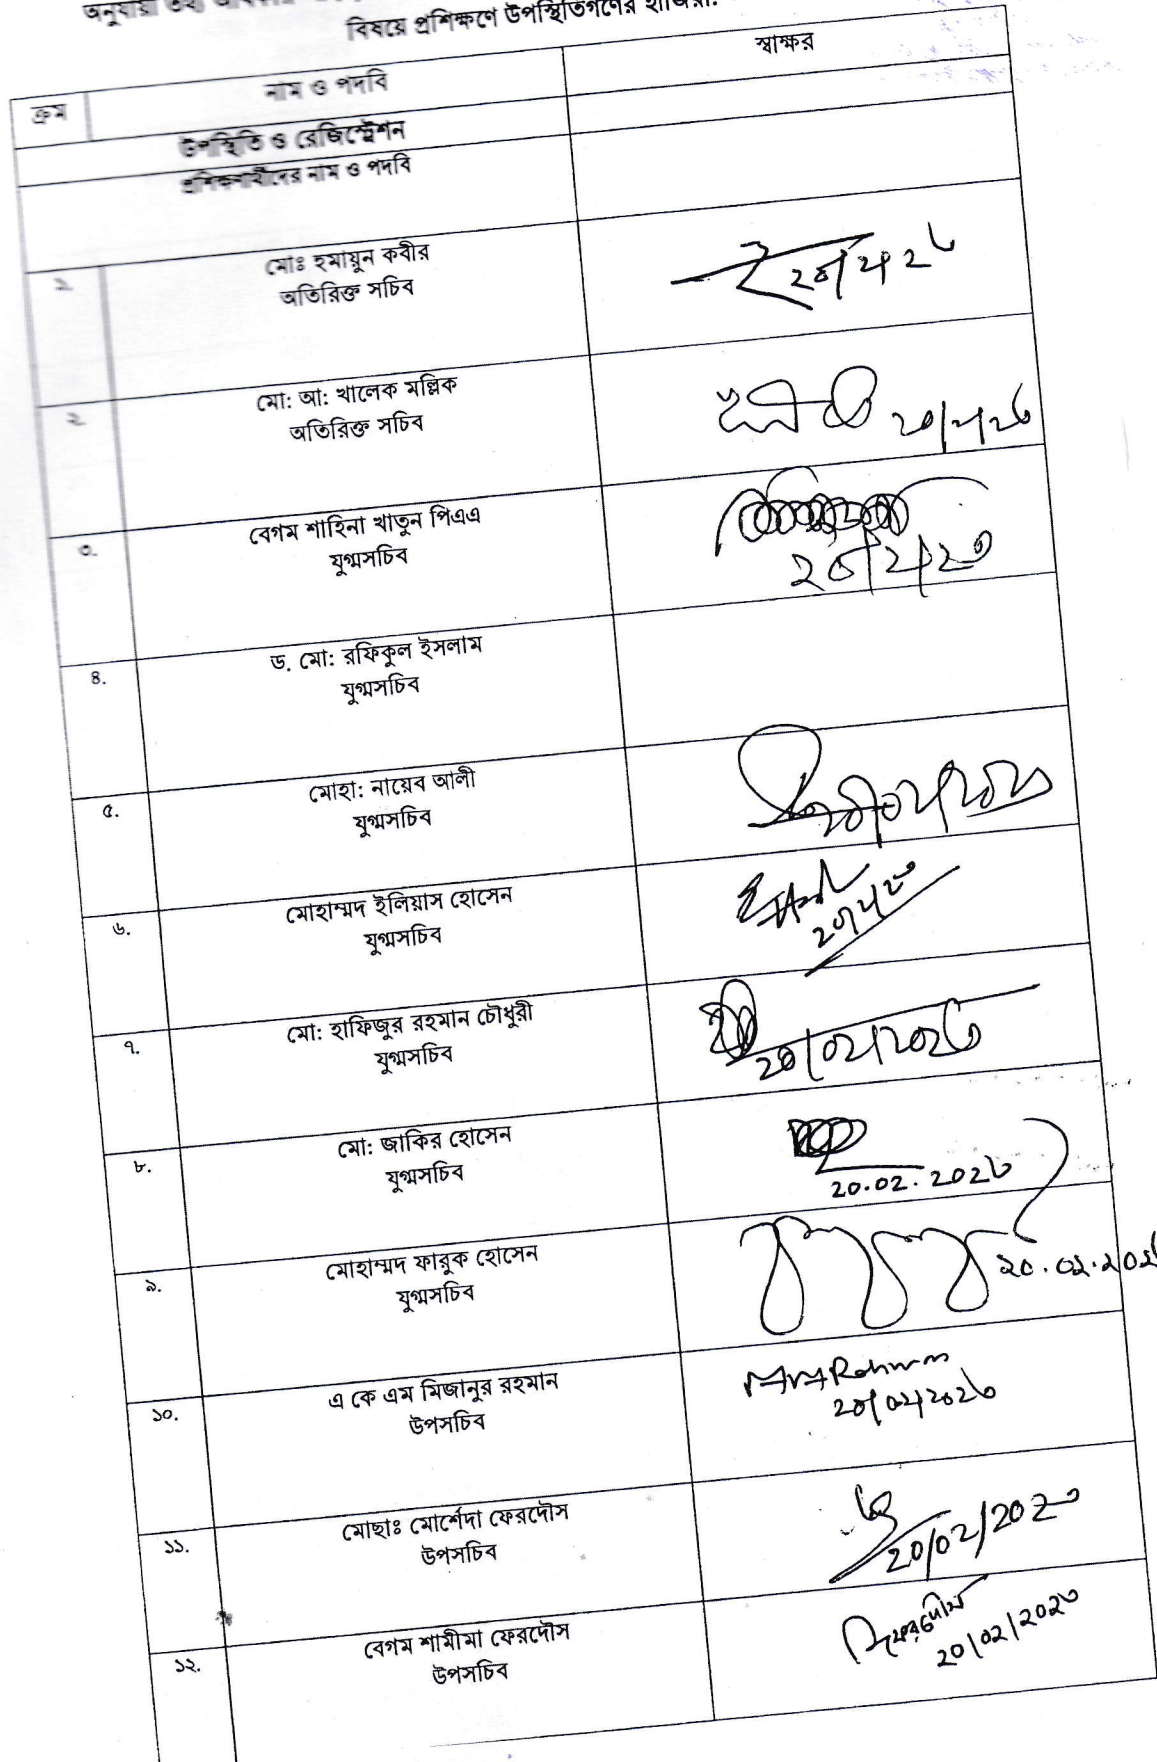 বিষয়ে প্রশিক্ষণে উপস্থিতিগণের হাজিরা:
ক্রম নাম ও পদবি স্বাক্ষর
উপস্থিতি ও রেজিস্ট্রেশন
প্রশিক্ষণার্থীদের নাম ও পদবি
১ মোঃ হুমায়ুন কবীর
অতিরিক্ত সচিব
২ মো: আ: খালেক মল্লিক
অতিরিক্ত সচিব
৩. বেগম শাহিনা খাতুন পিএএ
যুগ্মসচিব
৪. ড. মো: রফিকুল ইসলাম
যুগ্মসচিব
৫. মোহা: নায়েব আলী
যুগ্মসচিব
৬. মোহাম্মদ ইলিয়াস হোসেন
যুগ্মসচিব
৭. মো: হাফিজুর রহমান চৌধুরী
যুগ্মসচিব
২০/০২/২০২৩
৮. মো: জাকির হোসেন
যুগ্মসচিব
২০.০২.২০২৩
৯. মোহাম্মদ ফারুক হোসেন
যুগ্মসচিব
১০. এ কে এম মিজানুর রহমান
উপসচিব
২০/০২/২০২৩
১১. মোছাঃ মোর্শেদা ফেরদৌস
উপসচিব
২০/০২/২০২৩
১২. বেগম শামীমা ফেরদৌস
উপসচিব
২০/০২/২০২৩